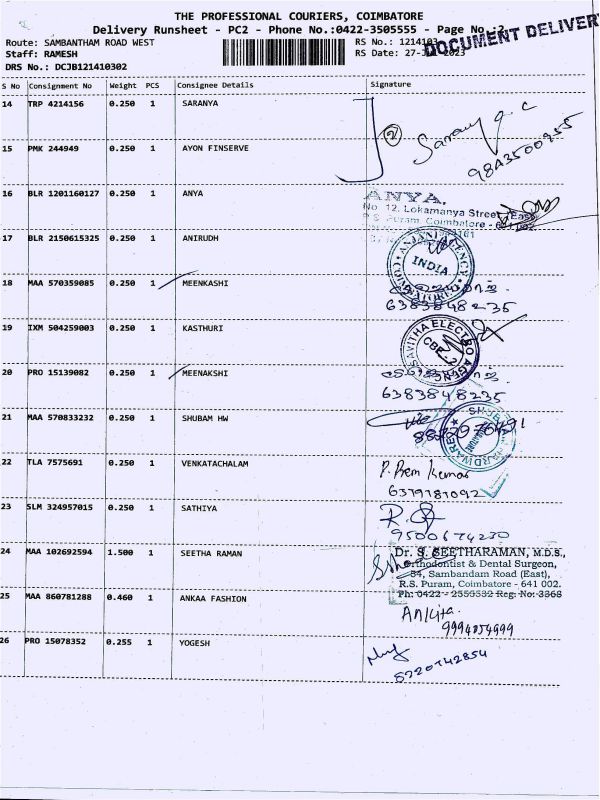 THE PROFESSIONAL COURIERS, COIMBATORE
Delivery Runsheet - PC2 - Phone No.:0422-3505555 - Page No.:2
DOCUMENT DELIVERY
Route: SAMBANTHAM ROAD WEST RS No.: 1214103
Staff: RAMESH RS Date: 27-Jul-2023
DRS No.: DCJB121410302
S No Consignment No Weight PCS Consignee Details Signature
14 TRP 4214156 0.250 1 SARANYA
2
15 PMK 244949 0.250 1 AYON FINSERVE
16 BLR 1201160127 0.250 1 ANYA
ANYA,
No. 12, Lokamanya Street, East
R.S. Puram, Coimbatore - 641 002
17 BLR 2150615325 0.250 1 ANIRUDH
ANJANI AGENCY
INDIA
COIMBATORE
18 MAA 570359085 0.250 1 MEENKASHI
6383848235
19 IXM 504259003 0.250 1 KASTHURI
SAVITHA ELECTRO AGENC
CBE-2
20 PRO 15139082 0.250 1 MEENAKSHI
6383848235
21 MAA 570833232 0.250 1 SHUBAM HW
HARDWARE
22 TLA 7575691 0.250 1 VENKATACHALAM
P. Prem Kumar
6379181092
23 SLM 324957015 0.250 1 SATHIYA
9500674230
24 MAA 102692594 1.500 1 SEETHA RAMAN
Dr. S. SEETHARAMAN, M.D.S.,
Orthodontist & Dental Surgeon,
54, Sambandam Road (East),
R.S. Puram, Coimbatore - 641 002.
Ph: 0422 - 2550532 Reg: No: 3368
25 MAA 860781288 0.460 1 ANKAA FASHION
Ankita.
9994054999
26 PRO 15078352 0.255 1 YOGESH